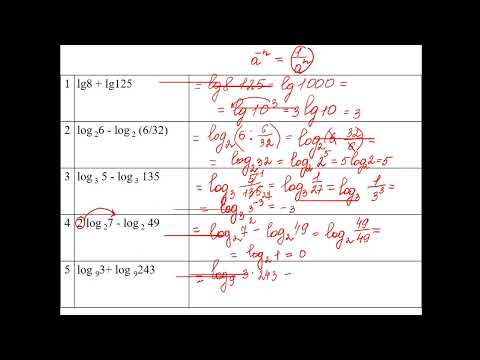 a⁻ⁿ = 1/aⁿ
1 lg8 + lg125 = lg 8·125 = lg 1000 =
= lg 10³ = 3 lg 10 = 3
2 log ₂6 - log ₂ (6/32) = log₂(6 : 6/32) = log₂(6 · 32/6) =
= log₂ 32 = log₂ 2⁵ = 5 log₂ 2 = 5
3 log ₃ 5 - log ₃ 135 = log₃ 5¹/135₂₇ = log₃ 1/27 = log₃ 1/3³
= log₃ 3⁻³ = -3
4 2log ₂7 - log ₂ 49 = log₂ 7² - log₂ 49 = log₂ 49/49 =
= log₂ 1 = 0
5 log ₉3+ log ₉243 = log₉ 3 · 243 =